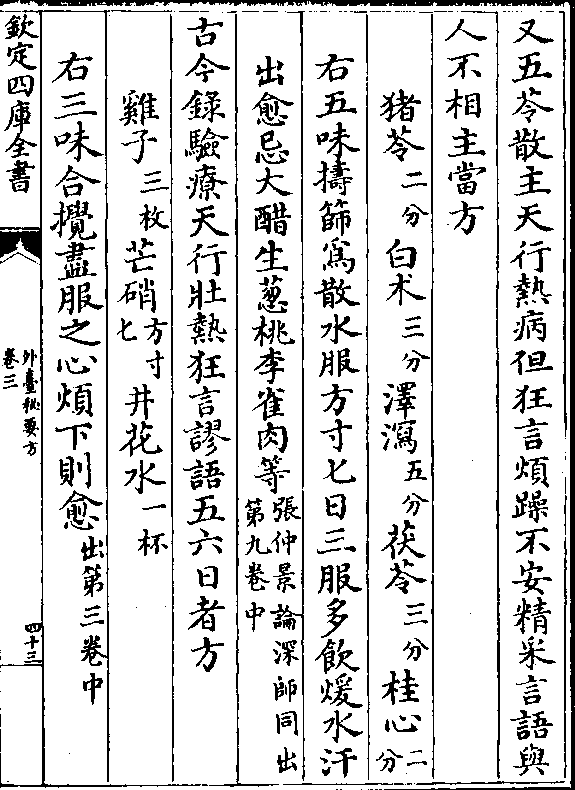 又五苓散主天行熱病但狂言煩躁不安精采言語與
人不相主當方
猪苓二分白术三分澤瀉五分茯苓三分桂心二分
右五味擣篩為散水服方寸匕日三服多飲煖水汗
出愈忌大醋生葱桃李雀肉等張仲景論深師同出第九卷中
古今錄驗療天行壯熱狂言謬語五六日者方
雞子三枚芒硝方寸匕井花水一杯
右三味合攪盡服之心煩下則愈出第三卷中
欽定四庫全書
外臺秘要方
卷三
四十三